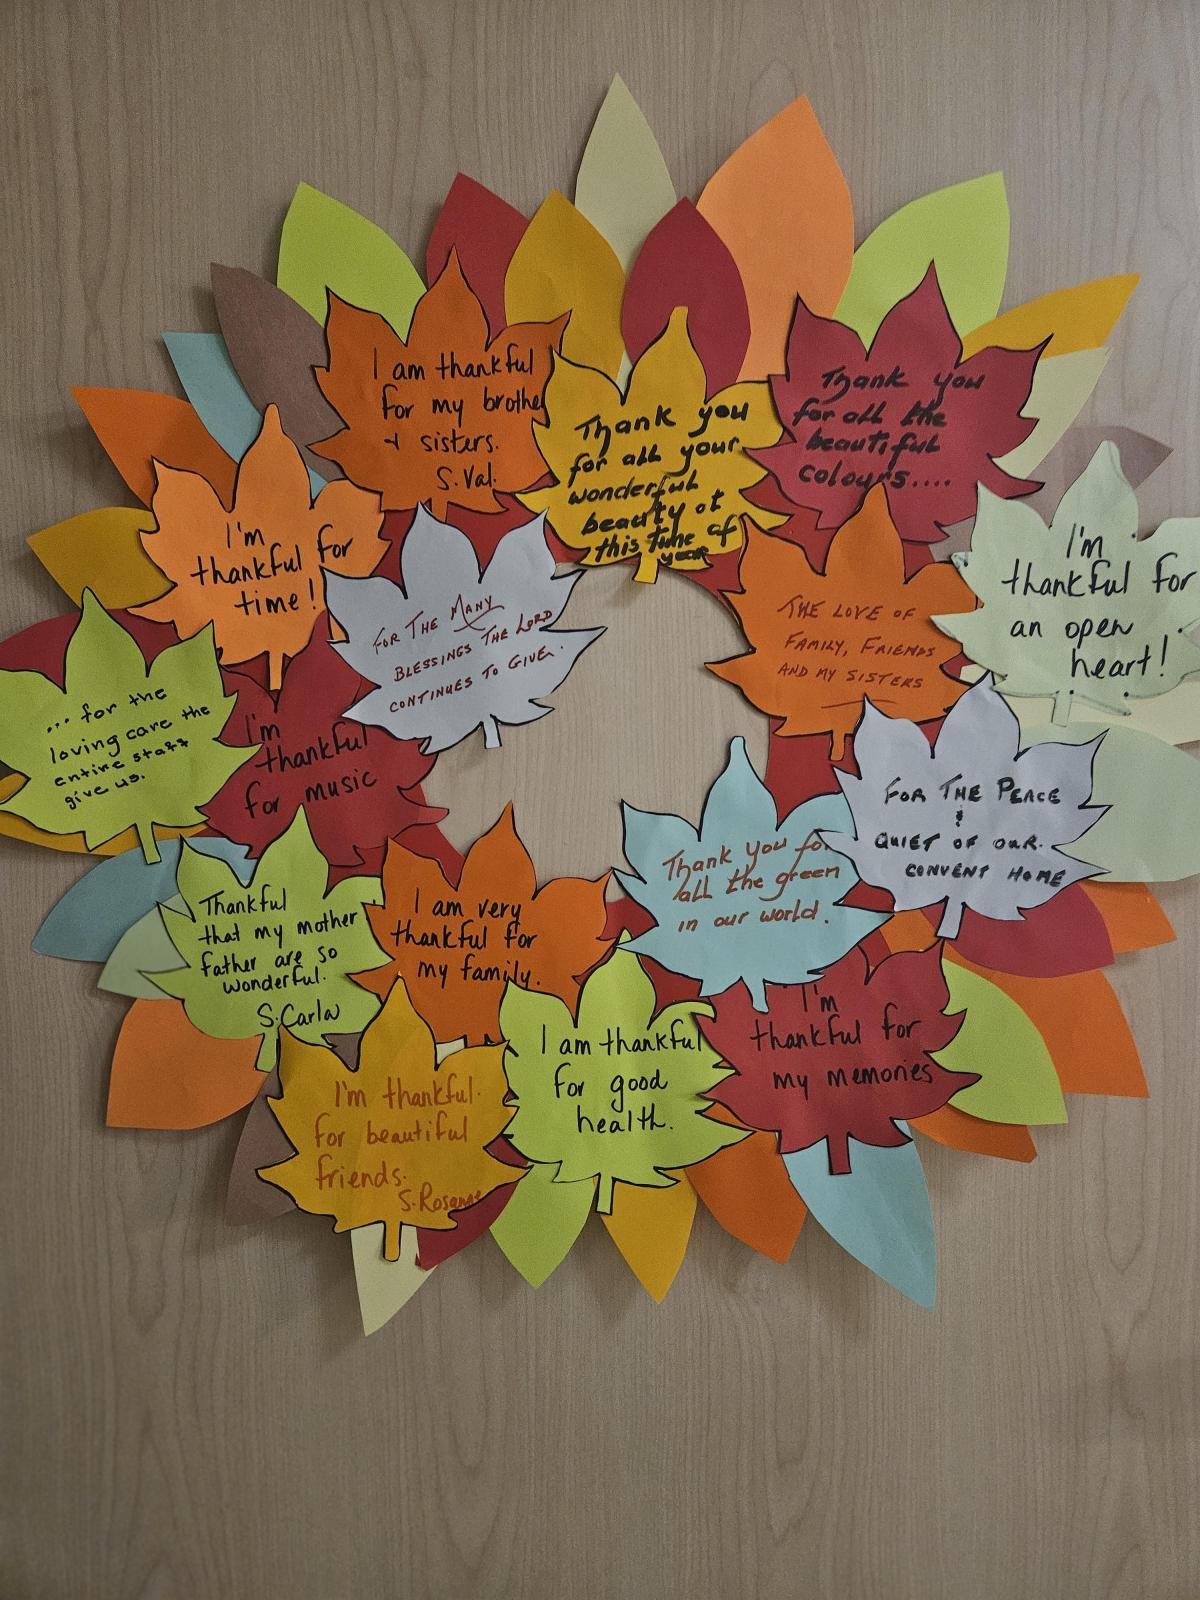 I am thankful
for my brothe
+ sisters.
S. Val.
Thank you
for all your
wonderful
beauty at
this time of
year
Thank you
for all the
beautiful
colours....
I'm
thankful for
time!
FOR THE MANY
BLESSINGS THE LORD
CONTINUES TO GIVE.
THE LOVE OF
FAMILY, FRIENDS
AND MY SISTERS
I'm
thankful for
an open
heart!
... for the
loving care the
entire staff
give us.
I'm
thankful
for music
FOR THE PEACE
&
QUIET OF OUR.
CONVENT HOME
Thank you for
all the green
in our world.
Thankful
that my mother
father are so
wonderful.
S. Carla
I am very
thankful for
my family.
I'm thankful.
for beautiful
friends.
S. Rosanne
I am thankful
for good
health.
I'm
thankful for
my memories